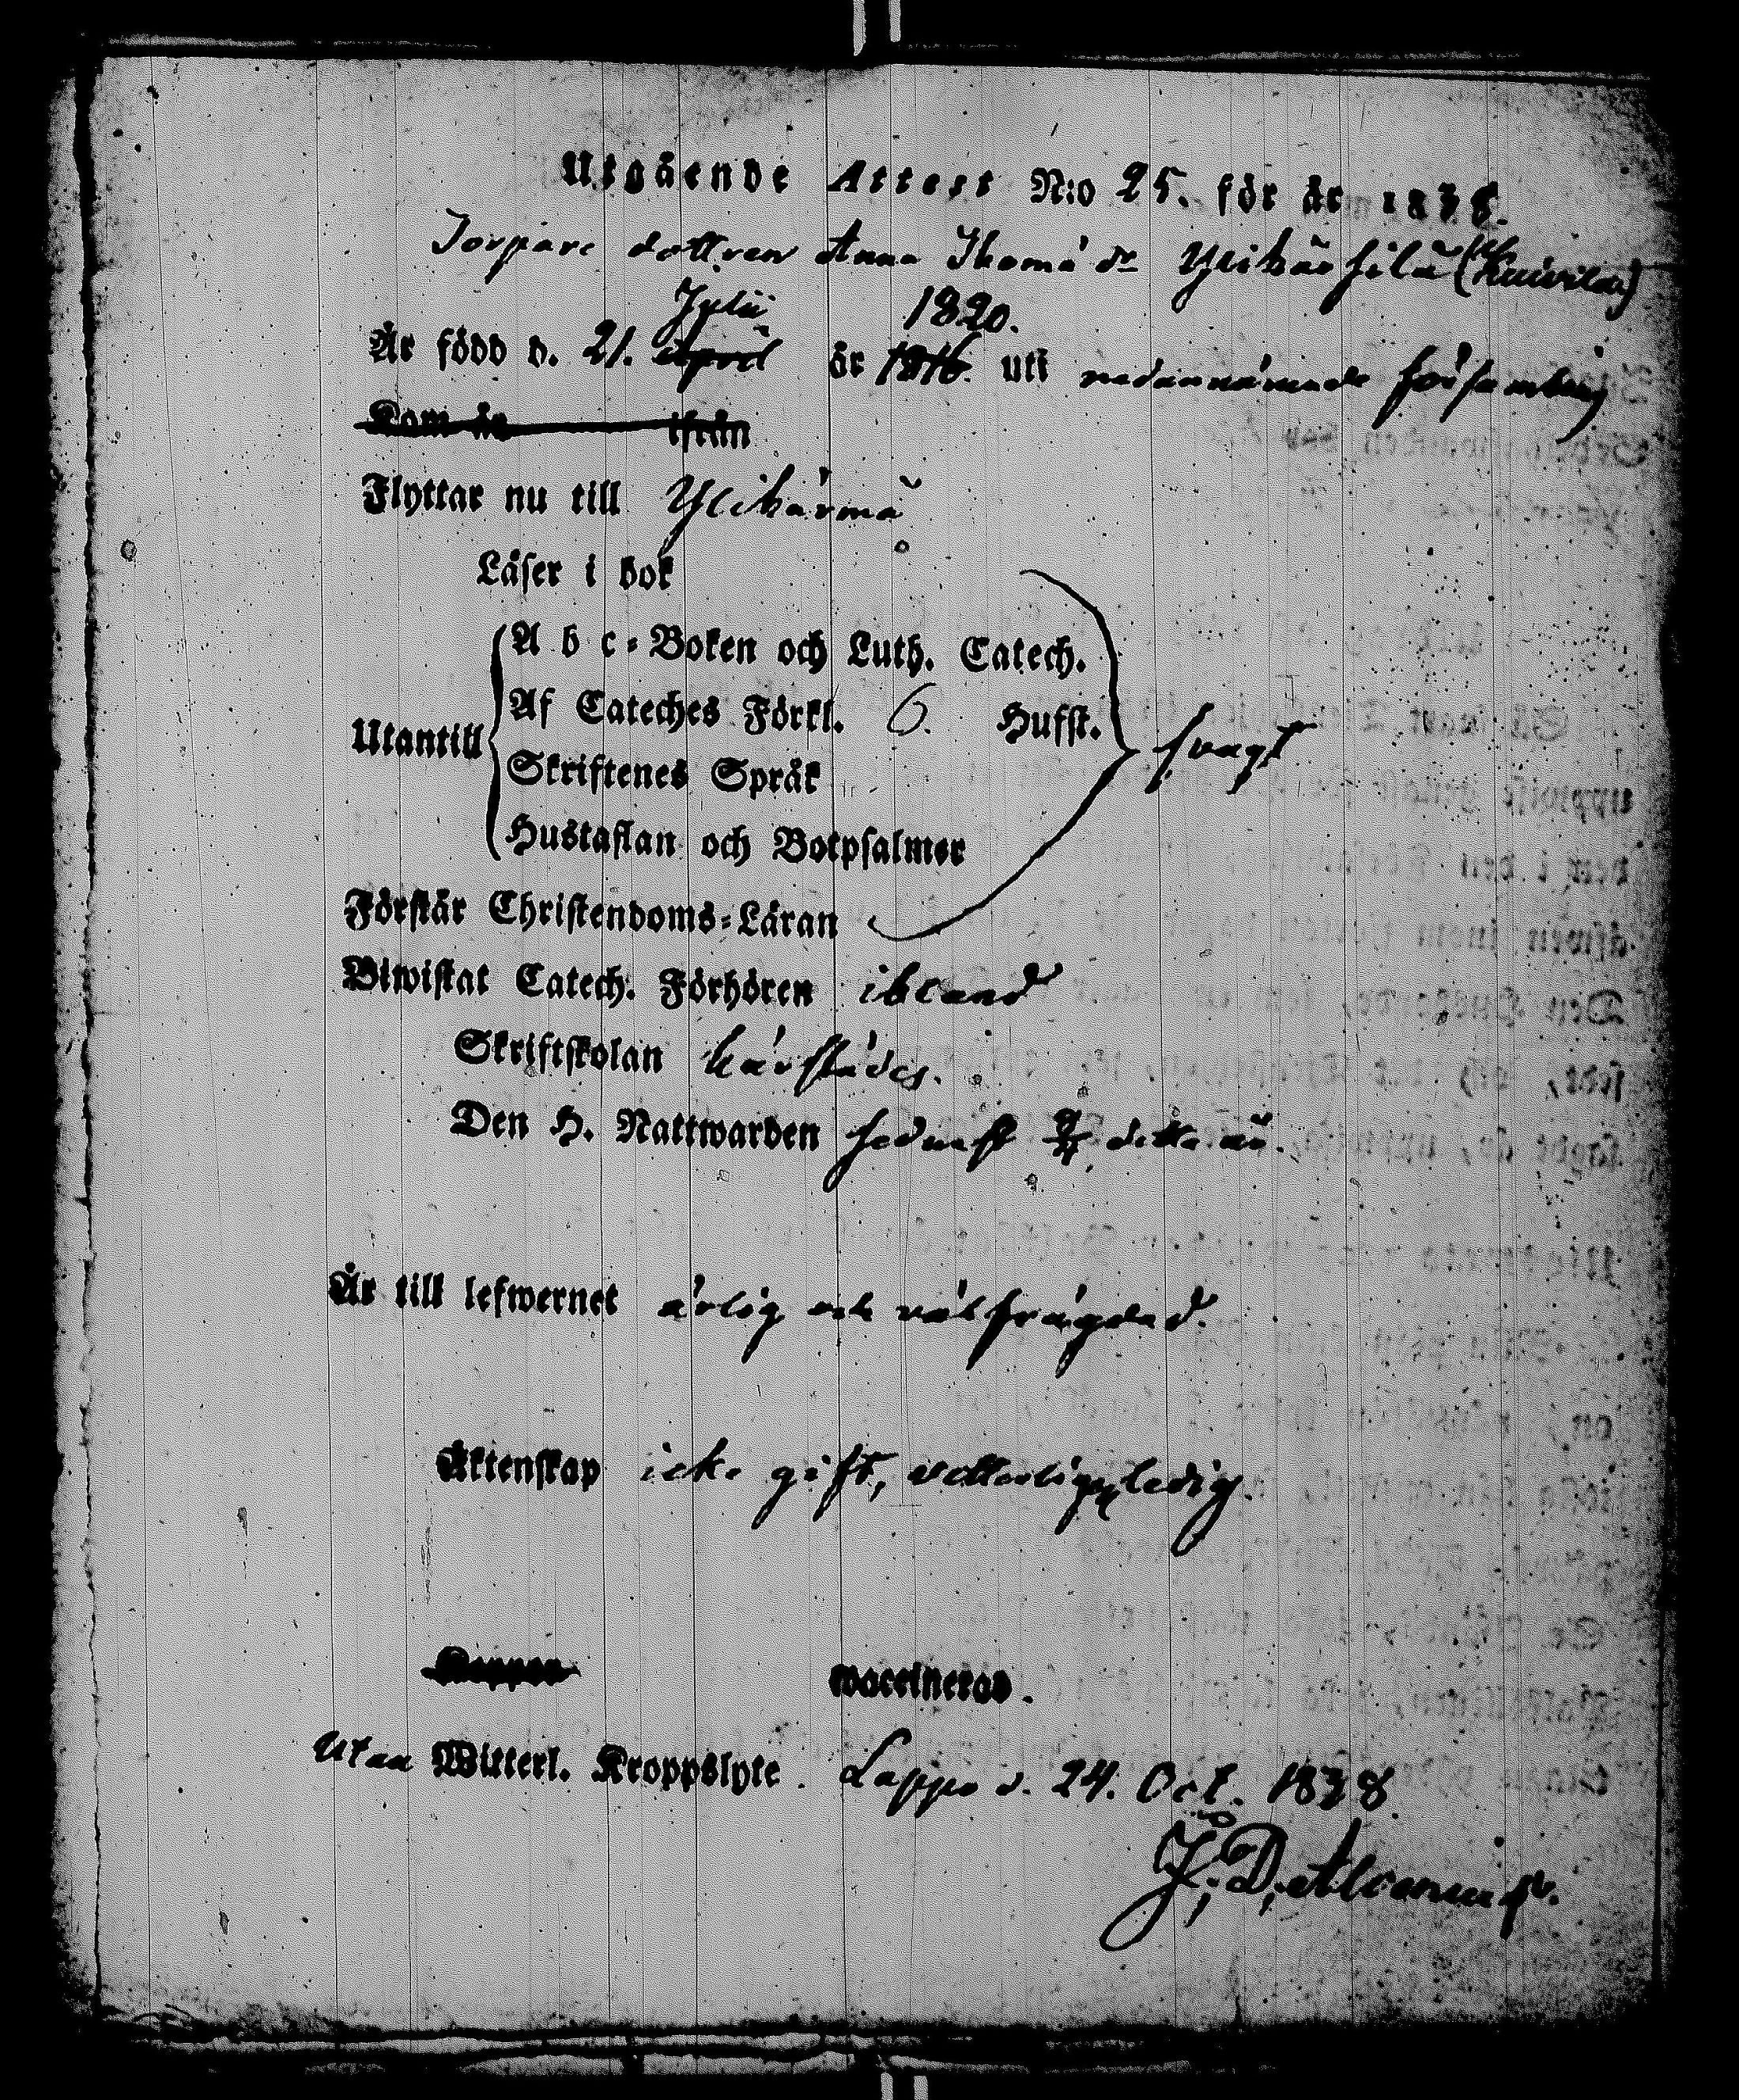 Utgående Attest N:o 25. för år 1838.
Torpare dottren Anna Thomä dr Ylikärsilä
Julii 1820.
Är född d. 21. April år 1816. uti nedannämnde församling
Kom år ifrån
Flyttar nu till Ylihärmä
Läser i bok
A b c-Boken och Luth. Catech.
Af Cateches Förkl. 6. Hufst.
Utantill
svagt
Skriftenes Språk
Hustaflan och Botpsalmer
Förstår Christendoms-Läran
Biwistat Catech. Förhören ibland
Skriftskolan härstädes.
Den H. Nattwarden sednast detta år.
Är till lefwernet ärlig och välfrägdad.
Äktenskap icke gift, vetterligen ledig.
Koppor waccinerad.
Utan Witterl. Kroppslyte. Lappo d. 24. Oct. 1838
J. D. Alcenius